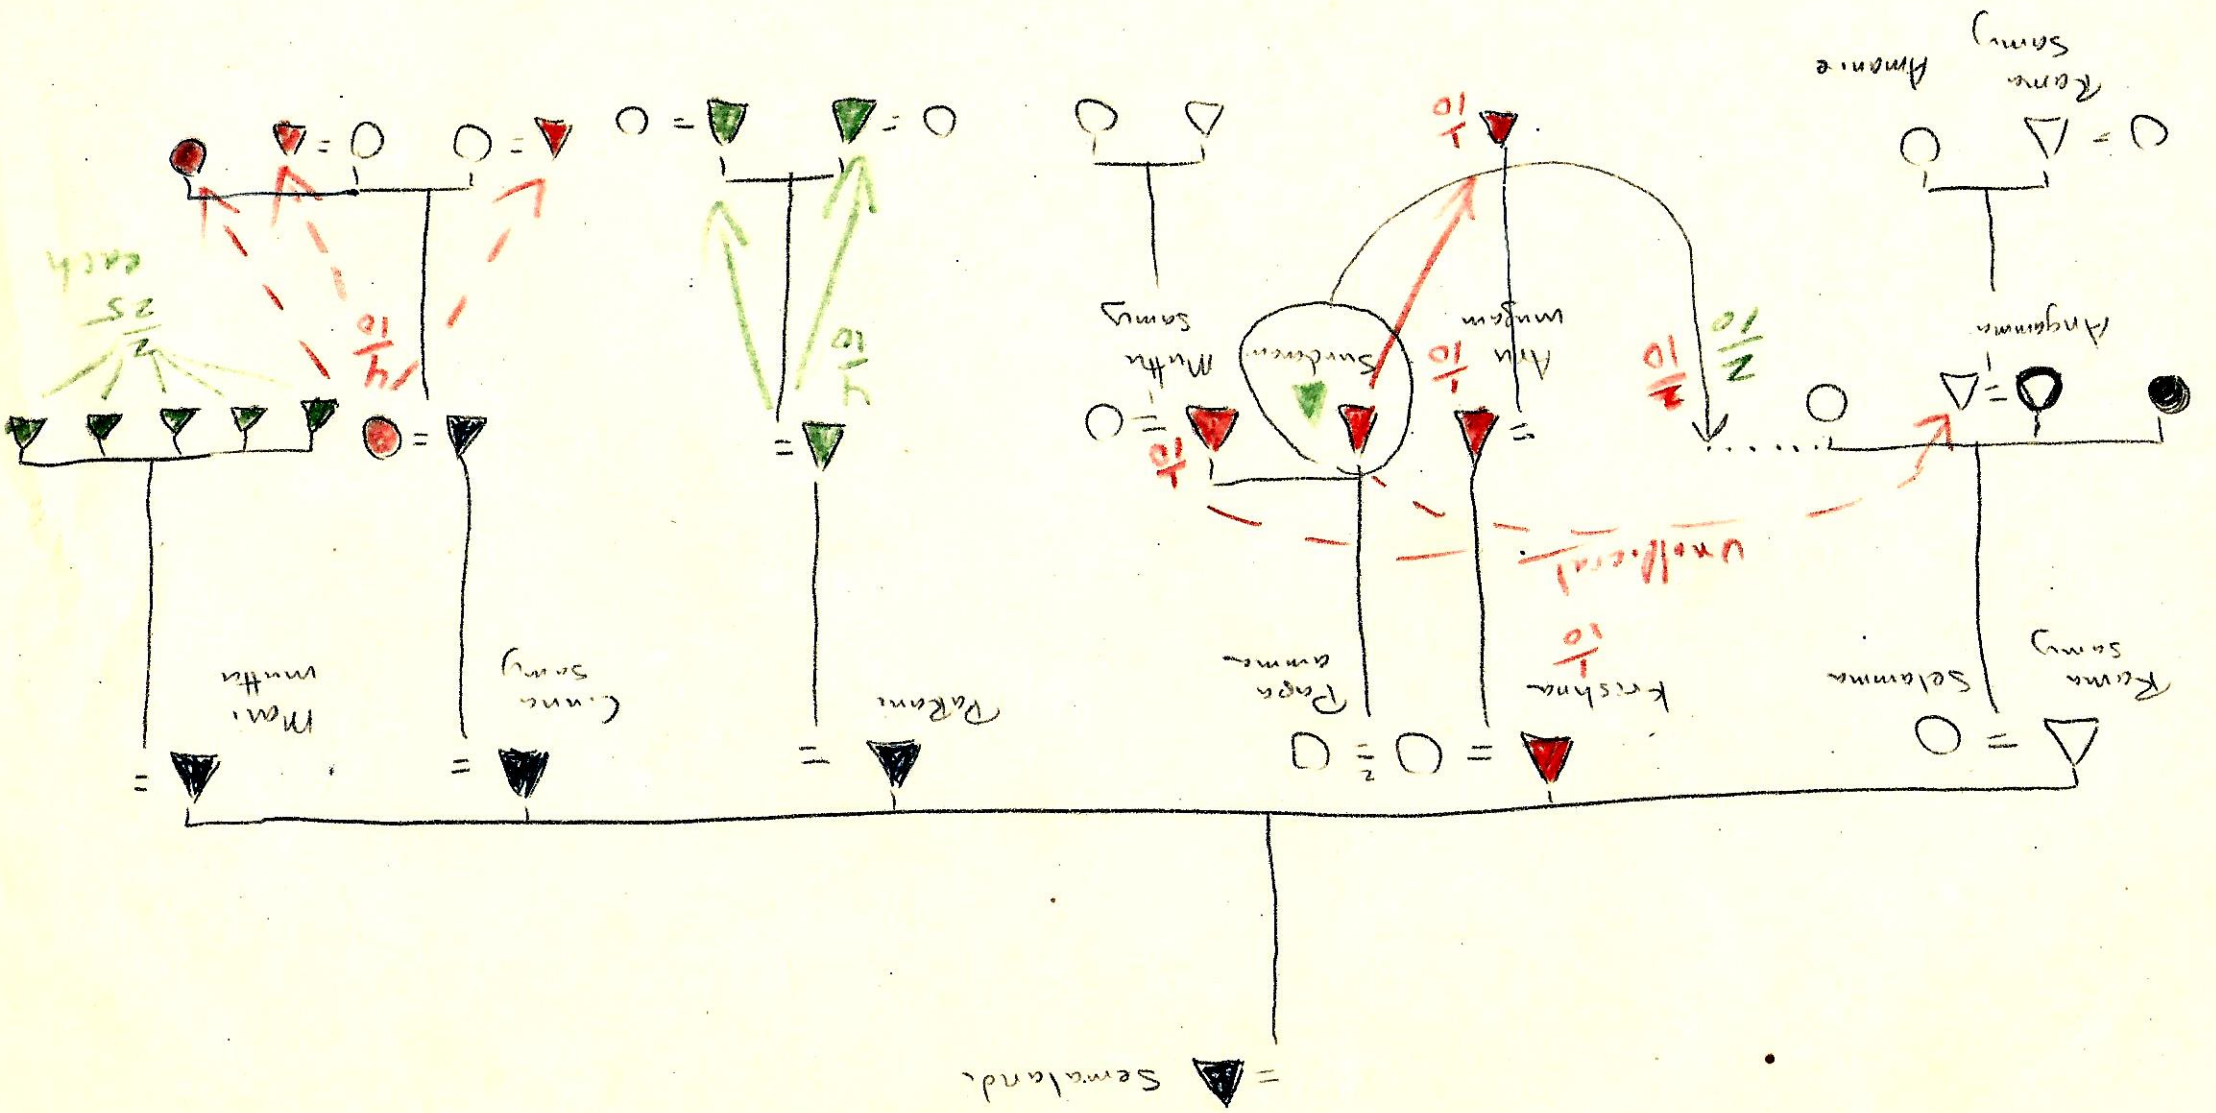 = Semalandi
Rama
samy
=
Selamma
Krishna
1/10
=
=
2
Papa
amma
Pakani
=
Cinna
samy
=
Mari
muttu
=
Unofficial
Angamma
=
2/10
2/10
Aru
mugam
=
1/10
Muttu
samy
=
1/10
4/10
=
4/10
=
2/25
each
Rama
samy
=
Amanie
1/10
=
=
=
=